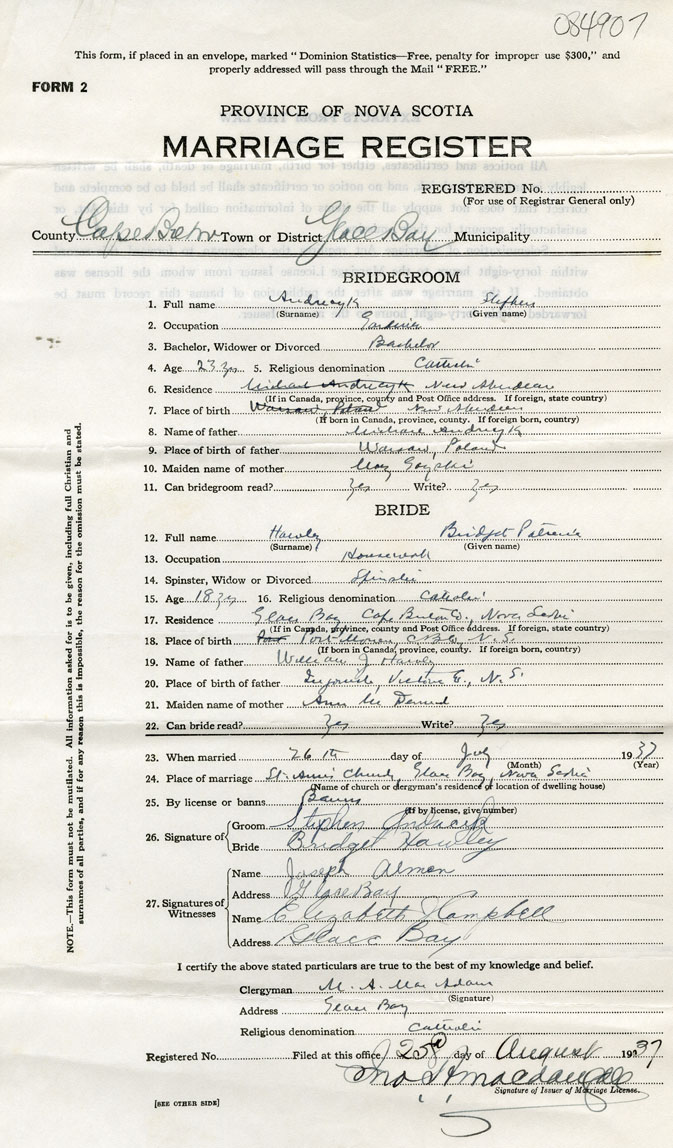 084907
This form, if placed in an envelope, marked "Dominion Statistics—Free, penalty for improper use $300," and
properly addressed will pass through the Mail "FREE."
FORM 2
PROVINCE OF NOVA SCOTIA
MARRIAGE REGISTER
REGISTERED No.
(For use of Registrar General only)
County Cape Breton Town or District Glace Bay Municipality
BRIDEGROOM
1. Full name Andrecyk Stephen
(Surname) (Given name)
2. Occupation
3. Bachelor, Widower or Divorced Bachelor
4. Age 23 yrs 5. Religious denomination Catholic
6. Residence Michael Andrecyk New Aberdeen
(If in Canada, province, county and Post Office address. If foreign, state country)
7. Place of birth Warsaw, Poland New Aberdeen
(If born in Canada, province, county. If foreign born, country)
8. Name of father Michael Andrecyk
9. Place of birth of father Warsaw, Poland
10. Maiden name of mother Mary
11. Can bridegroom read? Yes Write? Yes
BRIDE
12. Full name Hawley Bridget Patricia
(Surname) (Given name)
13. Occupation Housework
14. Spinster, Widow or Divorced Spinster
15. Age 18 yrs 16. Religious denomination Catholic
17. Residence Glace Bay Cape Breton Co, Nova Scotia
(If in Canada, province, county and Post Office address. If foreign, state country)
18. Place of birth Port Morien, C.B. Co, N.S.
(If born in Canada, province, county. If foreign born, country)
19. Name of father William J Hawley
20. Place of birth of father Ingonish, Victoria Co., N.S.
21. Maiden name of mother Ann
22. Can bride read? Yes Write? Yes
23. When married 26th day of July 1937
(Month) (Year)
24. Place of marriage St. Ann's Church, Glace Bay, Nova Scotia
(Name of church or clergyman's residence or location of dwelling house)
25. By license or banns Banns
(If by license, give number)
26. Signature of
Groom Stephen
Bride Bridget Hawley
27. Signatures of Witnesses
Name Joseph Almon
Address Glace Bay
Name Elizabeth Kampbell
Address Glace Bay
I certify the above stated particulars are true to the best of my knowledge and belief.
Clergyman M. A. MacAdam
(Signature)
Address Glace Bay
Religious denomination Catholic
Registered No. Filed at this office 25 day of August 1937
Signature of Issuer of Marriage License.
[SEE OTHER SIDE]
NOTE.—This form must not be mutilated. All information asked for is to be given, including full Christian and
surnames of all parties, and if for any reason this is impossible, the reason for the omission must be stated.